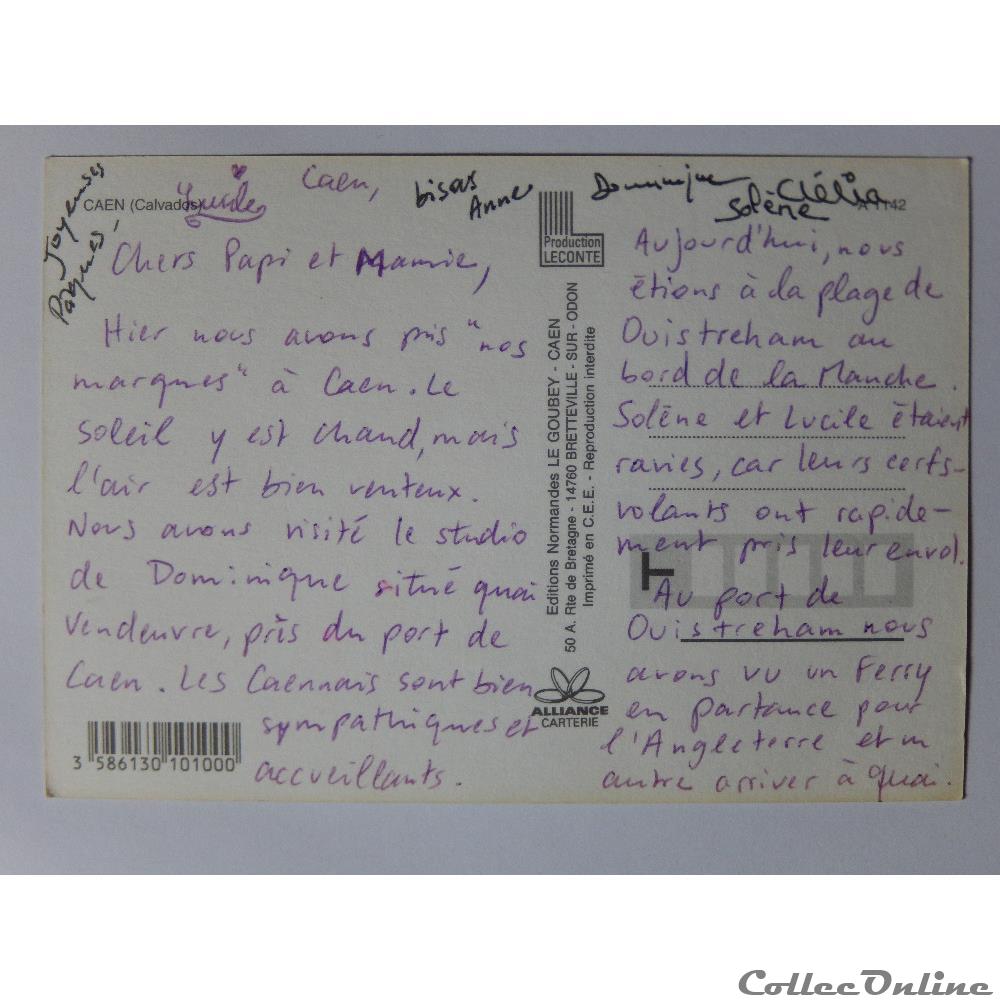 Joyeuses
Pâques!
CAEN (Calvados)
Lucile
Caen,
bisous
Anne
Dominique
Solène
Clélia
A 1142
Chers Papi et Mamie,
Hier nous avons pris "nos
marques" à Caen. Le
soleil y est chaud, mais
l'air est bien venteux.
Nous avons visité le studio
de Dominique situé quai
Vendeuvre, près du port de
Caen. Les Caennais sont bien
sympathiques et
accueillants.
3 586130 101000
Production
LECONTE
Editions Normandes LE GOUBEY - CAEN
50 A. Rte de Bretagne - 14760 BRETTEVILLE - SUR - ODON
Imprimé en C.E.E. - Reproduction interdite
ALLIANCE
CARTERIE
Aujourd'hui, nous
étions à la plage de
Ouistreham au
bord de la Manche.
Solène et Lucile étaient
ravies, car leurs cerfs-
volants ont rapide-
ment pris leur envol.
Au port de
Ouistreham nous
avons vu un Ferry
en partance pour
l'Angleterre et un
autre arriver à quai.
CollecOnline